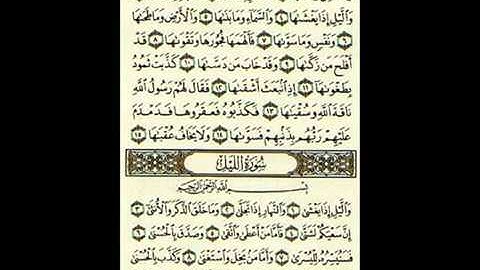 وَٱلَّيْلِ إِذَا يَغْشَىٰهَا ٤ وَٱلسَّمَآءِ وَمَا بَنَىٰهَا ٥ وَٱلْأَرْضِ وَمَا طَحَىٰهَا
٦ وَنَفْسٍ وَمَا سَوَّىٰهَا ٧ فَأَلْهَمَهَا فُجُورَهَا وَتَقْوَىٰهَا ٨ قَدْ
أَفْلَحَ مَن زَكَّىٰهَا ٩ وَقَدْ خَابَ مَن دَسَّىٰهَا ١٠ كَذَّبَتْ ثَمُودُ
بِطَغْوَىٰهَآ ١١ إِذِ ٱنۢبَعَثَ أَشْقَىٰهَا ١٢ فَقَالَ لَهُمْ رَسُولُ ٱللَّهِ
نَاقَةَ ٱللَّهِ وَسُقْيَـٰهَا ١٣ فَكَذَّبُوهُ فَعَقَرُوهَا فَدَمْدَمَ
عَلَيْهِمْ رَبُّهُم بِذَنۢبِهِمْ فَسَوَّىٰهَا ١٤ وَلَا يَخَافُ عُقْبَـٰهَا ١٥
سُورَةُ ٱلَّيْلِ
بِسْمِ ٱللَّهِ ٱلرَّحْمَـٰنِ ٱلرَّحِيمِ
وَٱلَّيْلِ إِذَا يَغْشَىٰ ١ وَٱلنَّهَارِ إِذَا تَجَلَّىٰ ٢ وَمَا خَلَقَ ٱلذَّكَرَ وَٱلْأُنثَىٰٓ ٣
إِنَّ سَعْيَكُمْ لَشَتَّىٰ ٤ فَأَمَّا مَنْ أَعْطَىٰ وَٱتَّقَىٰ ٥ وَصَدَّقَ بِٱلْحُسْنَىٰ ٦
فَسَنُيَسِّرُهُۥ لِلْيُسْرَىٰ ٧ وَأَمَّا مَنۢ بَخِلَ وَٱسْتَغْنَىٰ ٨ وَكَذَّبَ بِٱلْحُسْنَىٰ